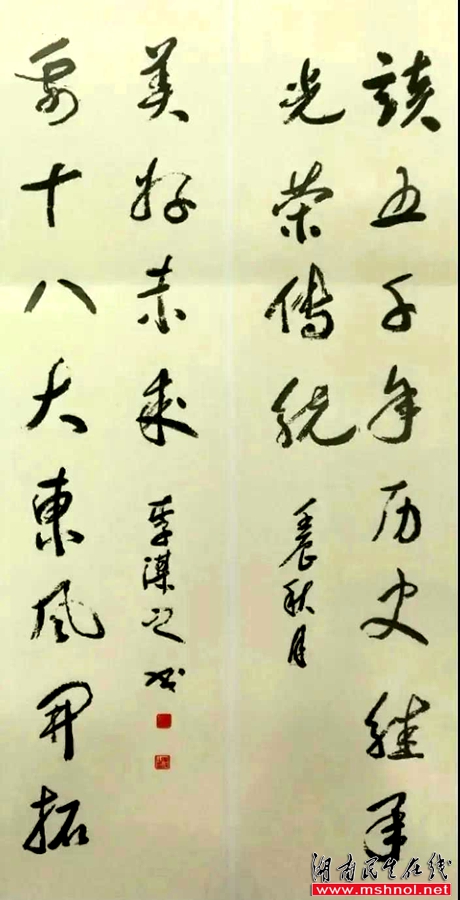 读五千年历史继承
光荣傳统
壬辰秋月
美好未来
李
乘十八大東風開拓
湖南民生在线
www.mshnol.net